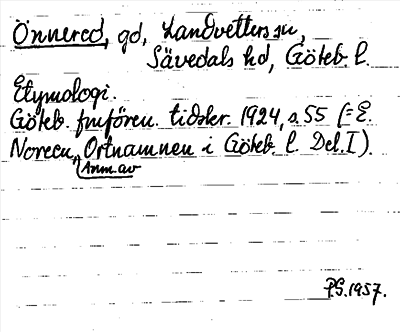 Önnered, gd, Landvetters sn,
Sävedals hd, Göteb. l.
Etymologi.
Göteb. fmfören. tidskr. 1924, s. 55 (= E.
Noreen, Ortnamnen i Göteb. l. Del. I).
Anm. av
P.G. 1957.